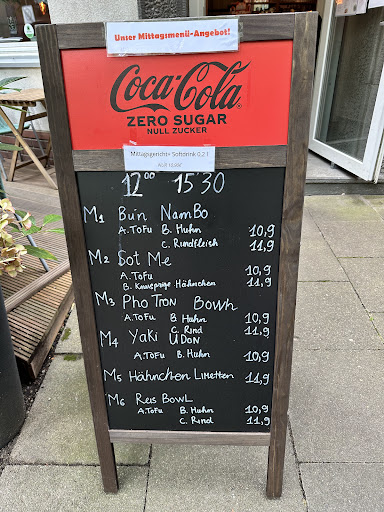 Unser Mittagsmenü-Angebot!
Coca-Cola
ZERO SUGAR
NULL ZUCKER
Mittagsgericht+ Softdrink 0,2 l
12⁰⁰ 15'30
M1 Bún NamBo
A.ToFu B. Huhn 10,9
C. Rindfleich 11,9
M2 Sot Me
A.ToFu 10,9
B. Knusprige Hähnchen 11,9
M3 Pho Tron Bowh
A.ToFu B Huhn 10,9
C. Rind 11,9
M4 Yaki UDON
A.ToFu B. Huhn 10,9
M5 Hähnchen Limetten 11,9
M6 Reis BowL
A.ToFu B. Huhn 10,9
C. Rind 11,9